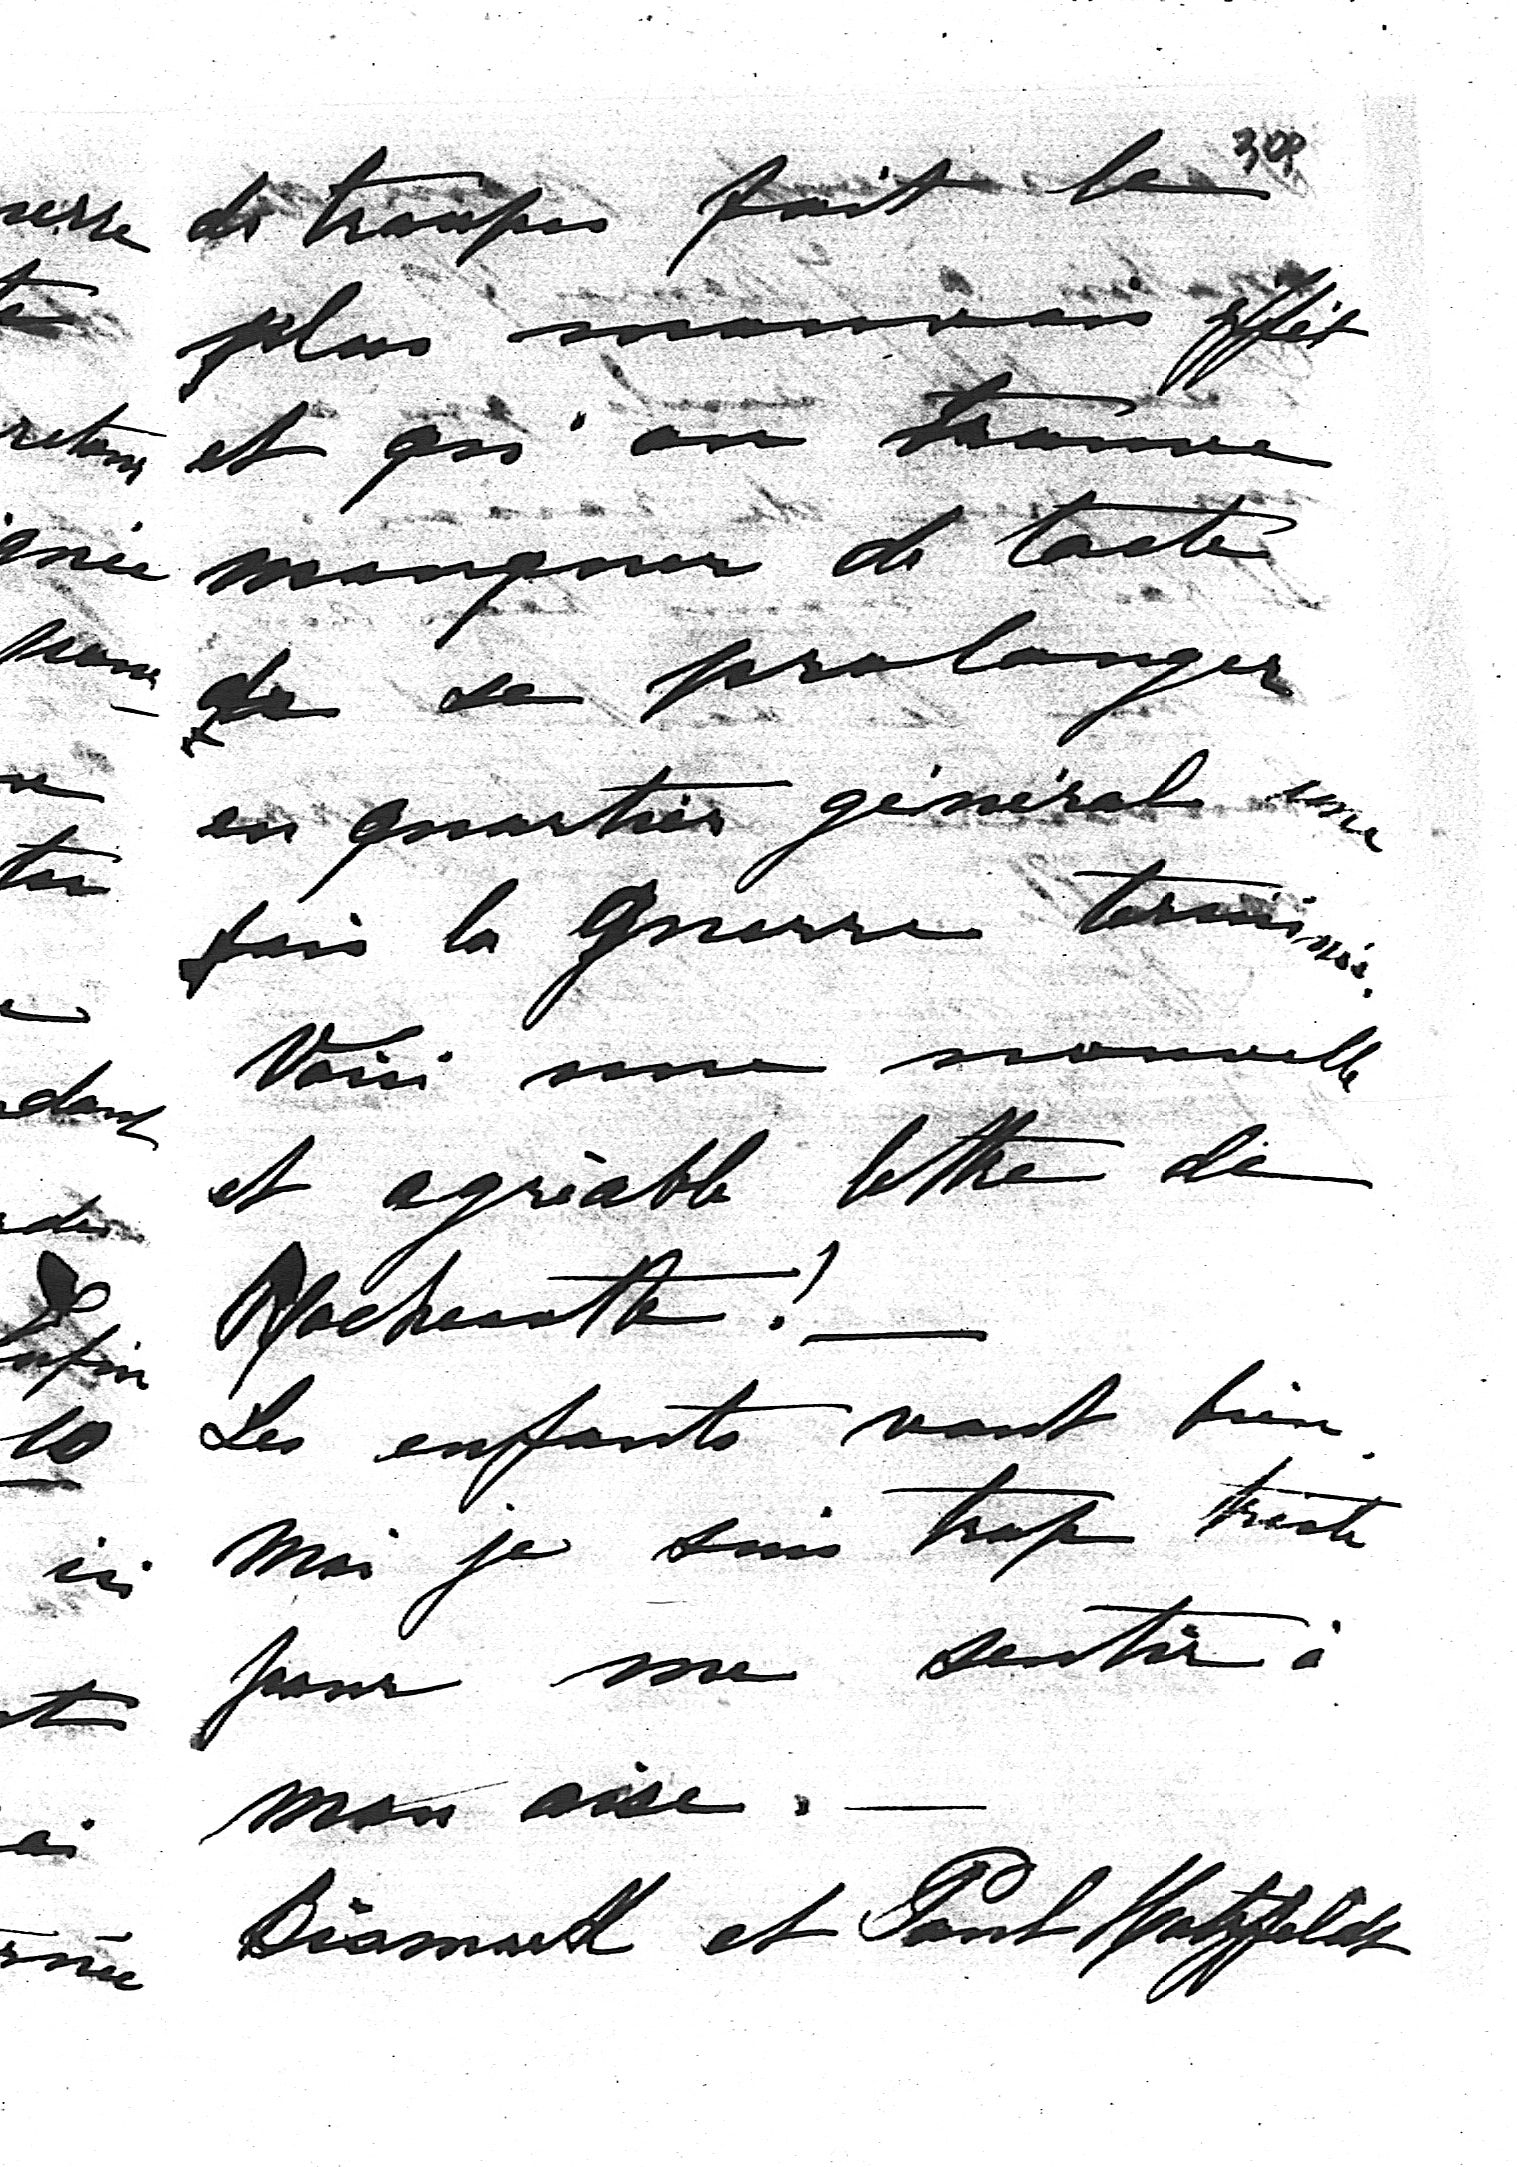 308
de troupes fait le
plus mauvais effet
et qu'on trouve
manquer de tacte
de se prolonger
en quartier général une
fois la guerre terminée.
Voici une nouvelle
et agréable lettre de
Rochecotte ! —
Les enfants vont bien.
Moi je suis trop triste
pour me sentir à
mon aise. —
Bismarck et Paul Hatzfeldt